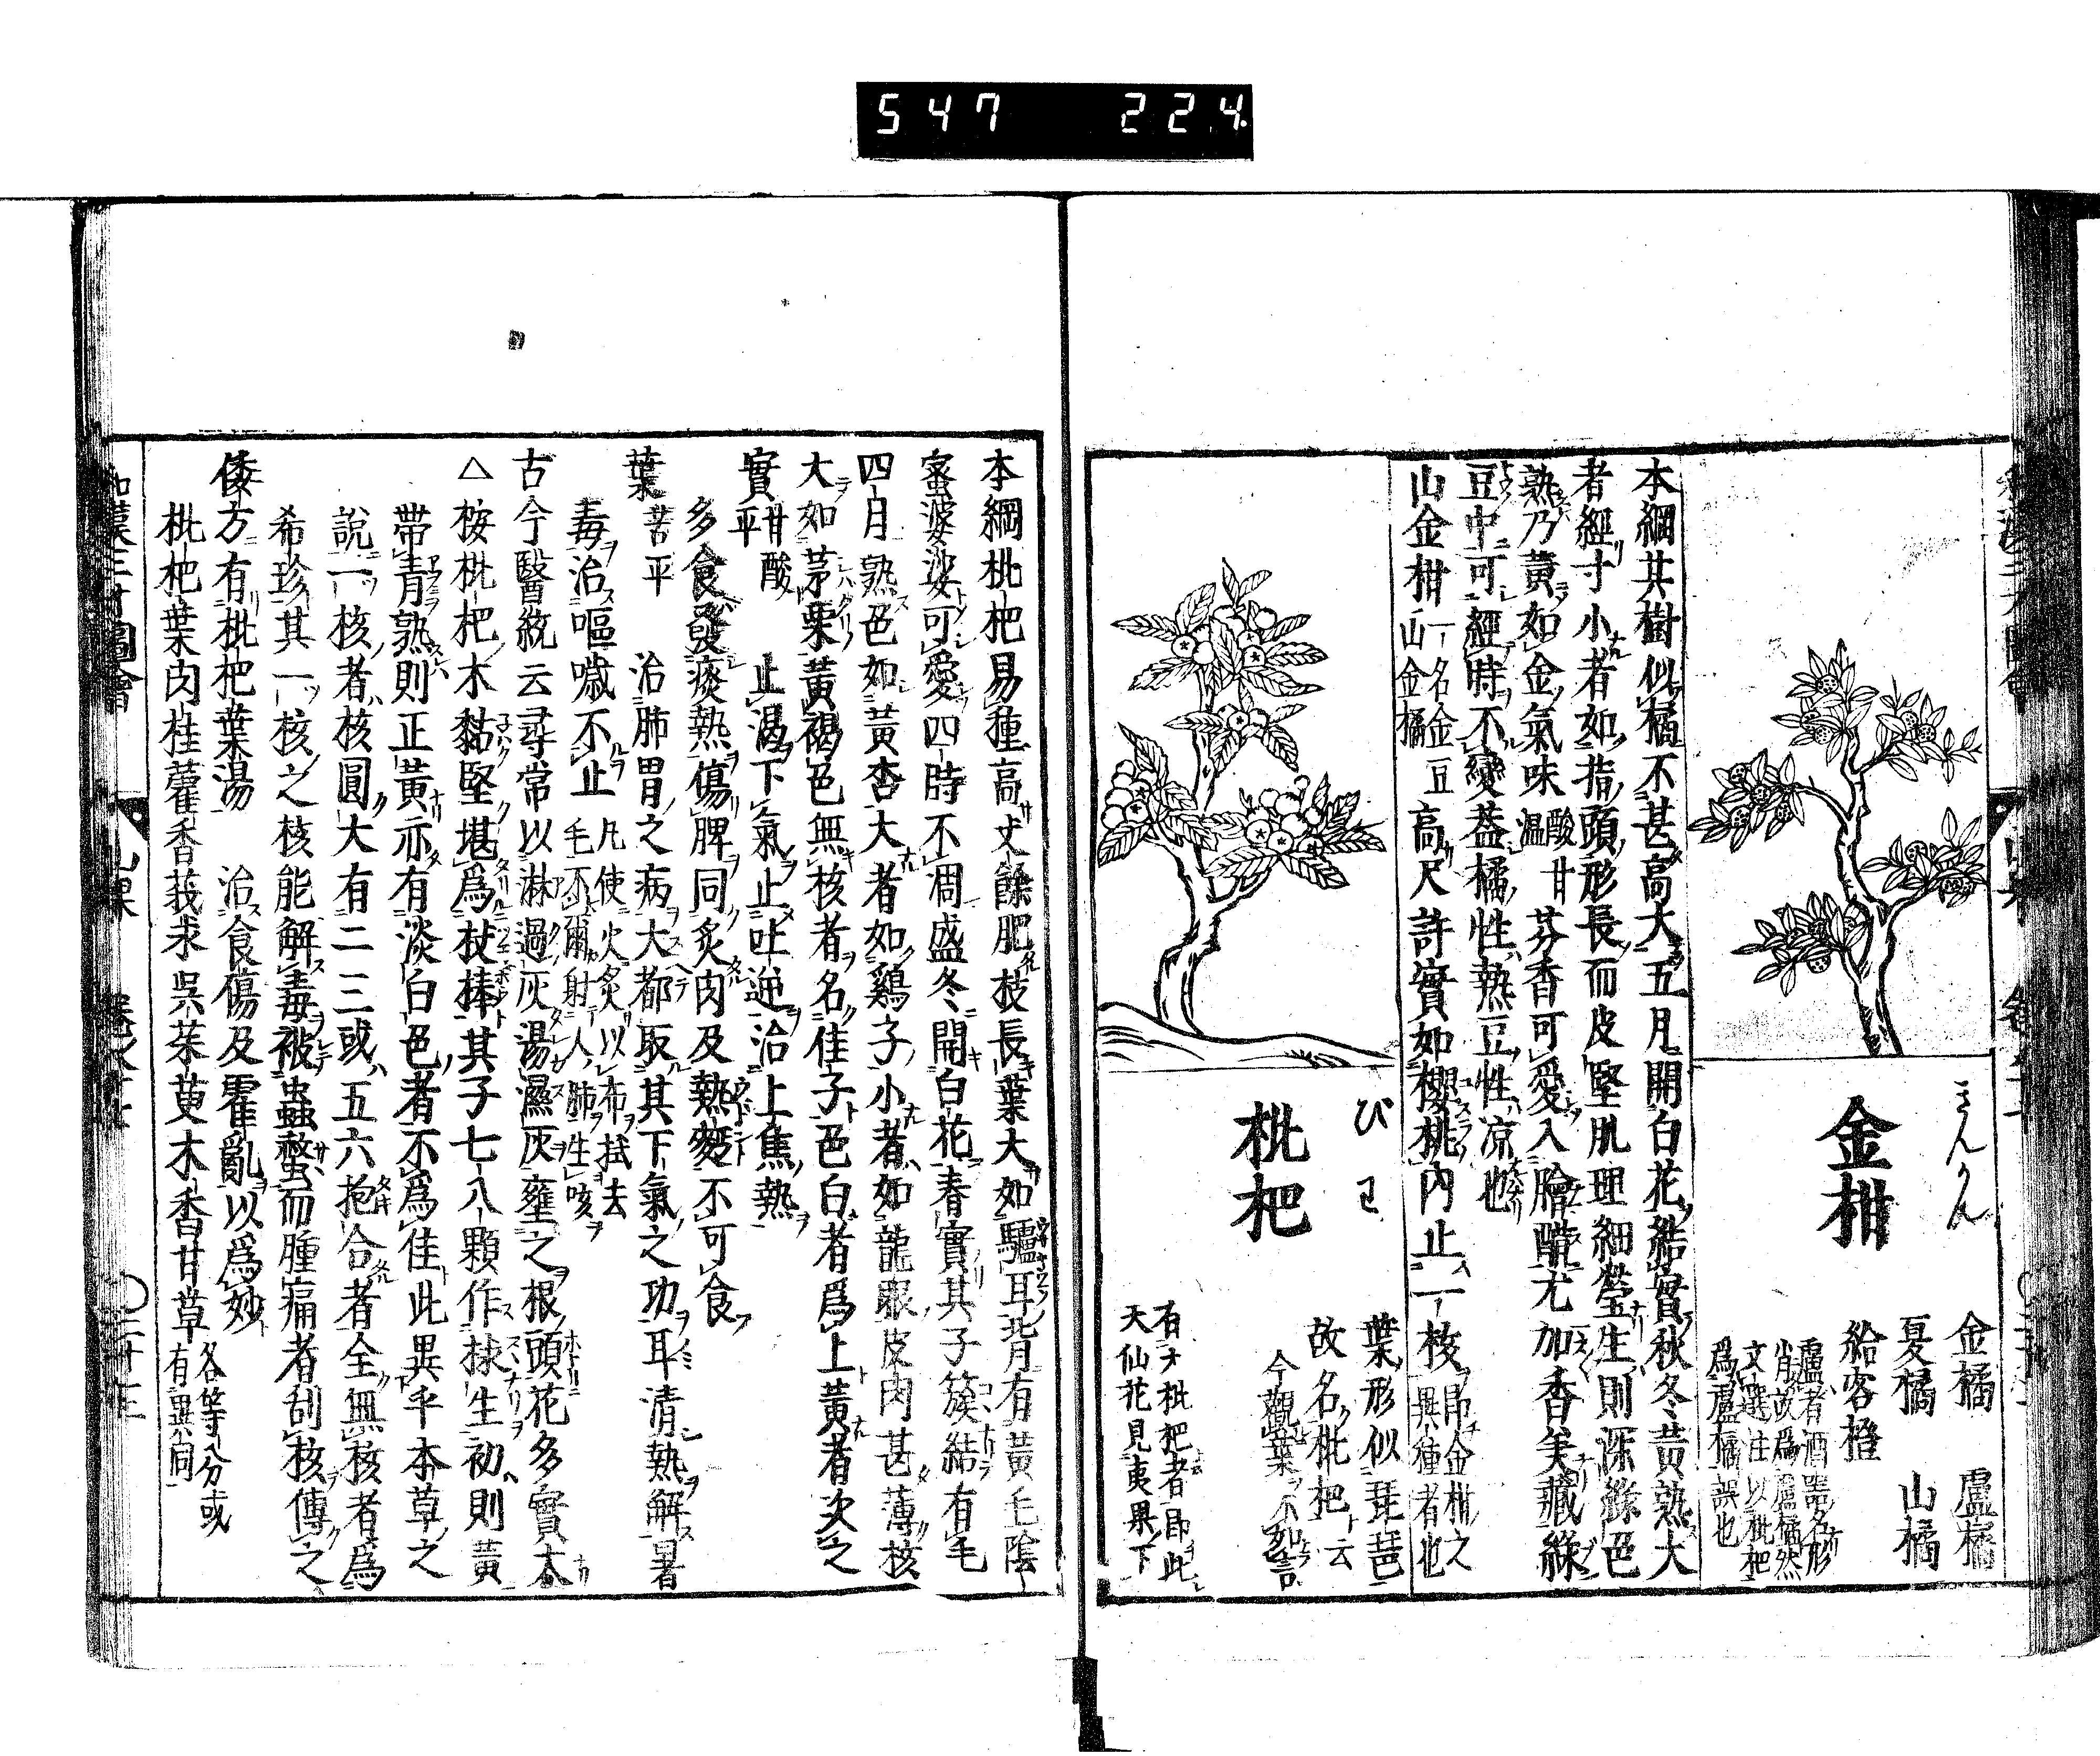 547 224
きんかん
金柑
金橘 盧橘
夏橘 山橘
給客橙
盧者酒器名形
肖故爲盧橘然
文選注以枇杷
爲盧橘誤也
本綱其樹似橘不甚高大五月開白花結實秋冬黄熟大
者經寸小者如指頭形長而皮堅肌理細瑩生則深緑色
熟乃黄如金氣味酸甘温甘芬香可愛入膾醋尤加香美藏緑
豆中可經時不變葢橘性熱豆性凉也
山金柑一名金豆
山金橘
高尺許實如櫻桃内止一核即金柑之
異種者也
びわ
枇杷
葉形似琵琶
故名枇杷云
今觀葉不如言
有犬枇杷者即此
天仙花見夷果下
本綱枇杷易種高丈餘肥枝長葉大如驢耳背有黄毛陰
蜜婆娑可愛四時不凋盛冬開白花春實其子簇結有毛
四月熟色如黄杏大者如鷄子小者如龍眼皮肉甚薄核
大如茅栗黄褐色無核者名焦子色白者爲上黄者次之
實甘酸平 止渇下氣止吐逆治上焦熱
多食發痰熱傷脾同炙肉及熱麪不可食
葉苦平 治肺胃之病大都取其下氣之功耳清熱解暑
毒治嘔噦不止凡使火炙以布拭去
毛不爾射人肺生咳
古今醫統云尋常以淋過灰湯濕灰壅之根頭花多實大
△按枇杷木黏堅堪爲杖棒其子七八顆作捄生初則黄
帶青熟則正黄亦有淡白色者不爲佳此異乎本草之
説一核者核圓大有二三或五六抱合者全無核者爲
希珍其一核之核能解毒被蟲螫而腫痛者刮核傅之
倭方有枇杷葉湯 治食傷及霍亂以爲妙
枇杷葉肉桂藿香莪朮呉茱萸木香甘草各等分或
有異同